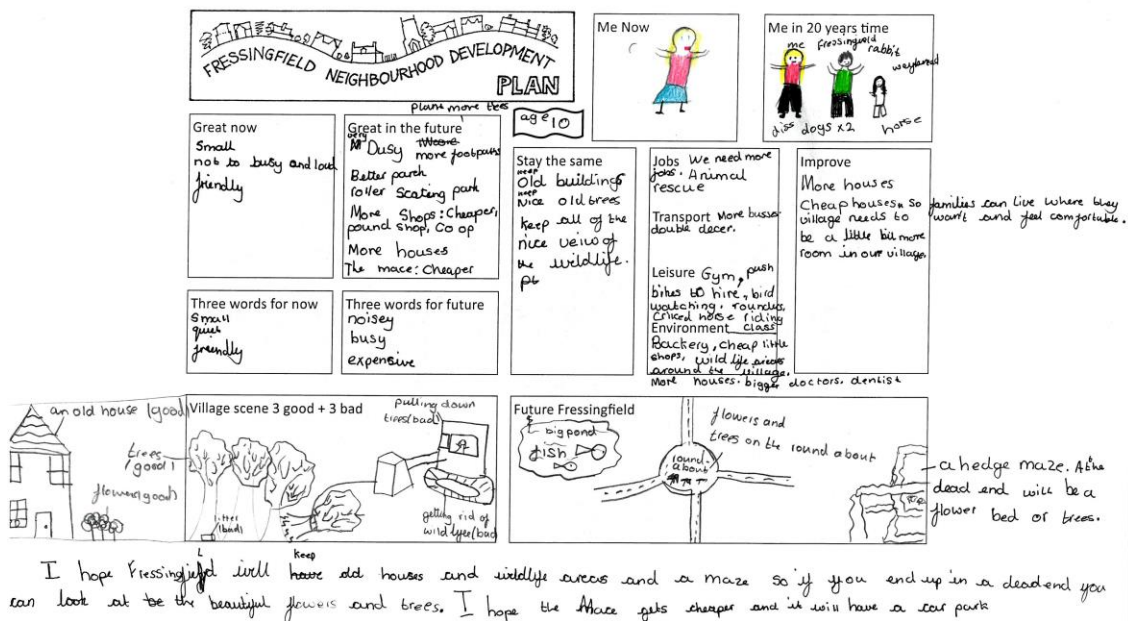 FRESSINGFIELD NEIGHBOURHOOD DEVELOPMENT
PLAN
Me Now
Me in 20 years time
me
Fressingfield
rabbit
diss
dogs x2
horse
age 10
Great now
Small
not to busy and loud
friendly
plant more trees
Great in the future
very
Busy
more footpaths
Better parch
roller Scating park
More Shops: Cheaper,
pound shop, Co op
More houses
The mace: Cheaper
Stay the same
keep
Old buildings
keep
Nice old trees
keep all of the
nice veiws of
the wildlife.
Jobs We need more
jobs. Animal
rescue
Transport More busses
double decer.
Leisure Gym, push
bikes to hire, bird
watching, rounders,
Criced horse riding
class
Environment
Backery, cheap little
shops, wild life areas
around the village.
More houses. bigger doctors. dentist
Improve
More houses
Cheap houses. so families can live where they
want and feel comfortable.
village needs to
be a little bit more
room in our village.
Three words for now
Small
quiet
freindly
Three words for future
noisey
busy
expensive
Village scene 3 good + 3 bad
an old house (good)
trees
(good)
flowers (good)
litter
(bad)
pulling down
trees (bad)
getting rid of
wild lyee (bad
Future Fressingfield
big pond
fish
round-
about
flowers and
trees on the round about
a hedge maze. At the
dead end will be a
flower bed or trees.
I hope Fressingfield will keep have old houses and wildlife areas and a maze so if you end up in a dead end you
can look at be the beautiful flowers and trees. I hope the Mace gets cheaper and it will have a car park